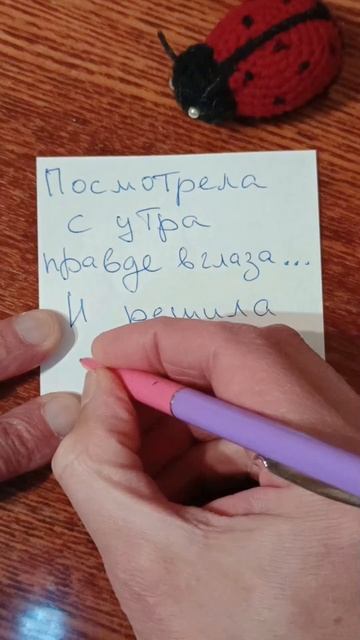 Посмотрела
с утра
правде в глаза...
И решила